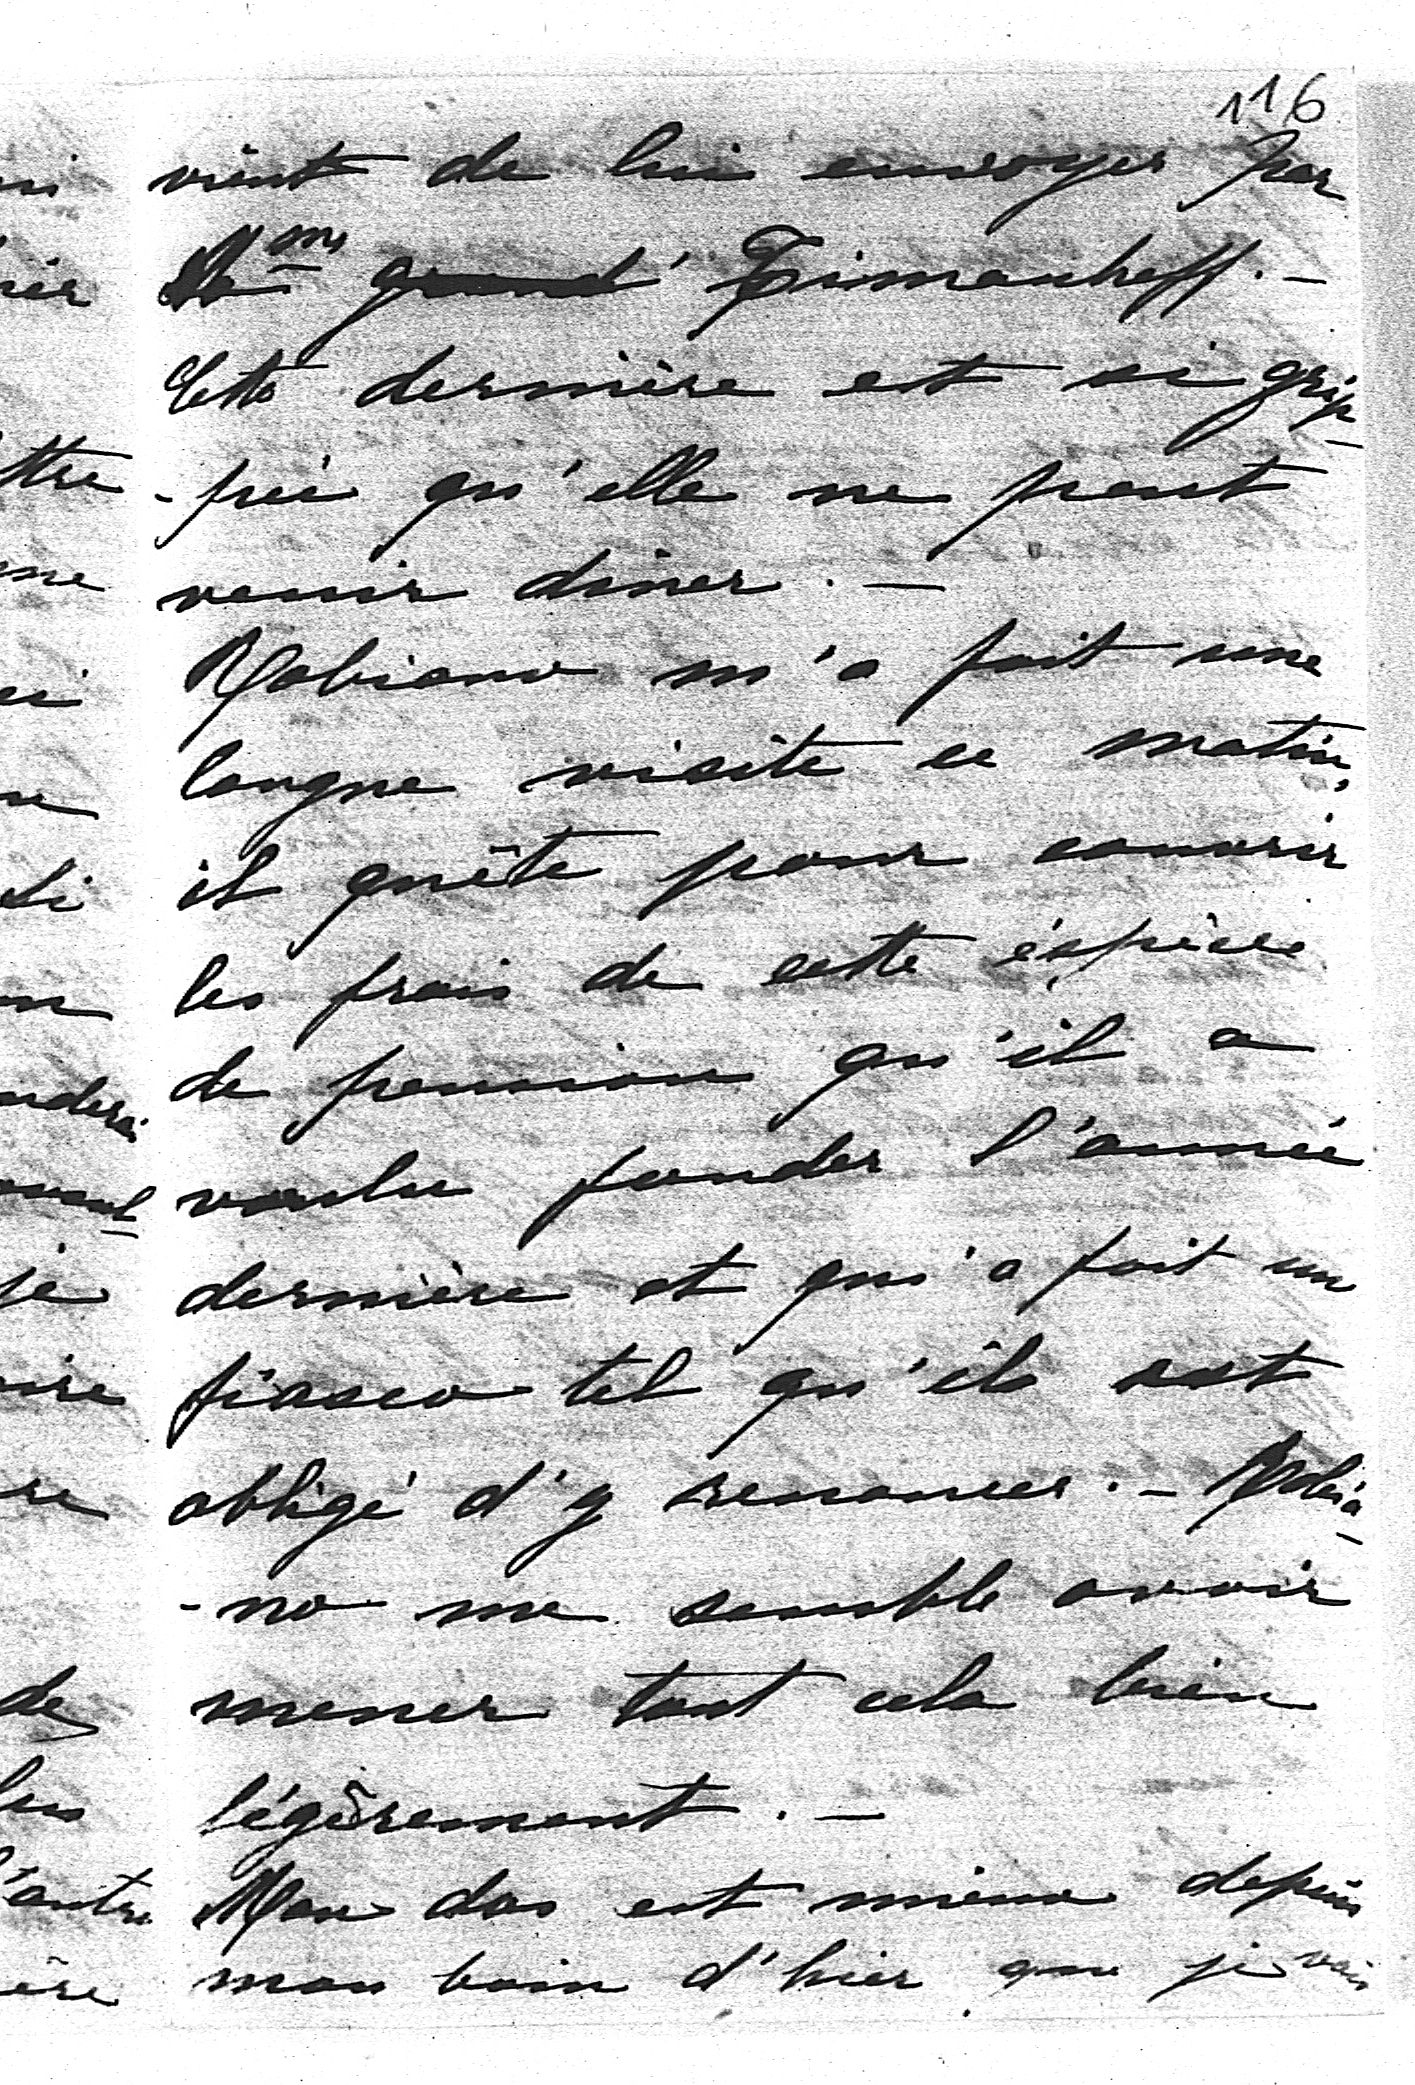 116
vient de lui envoyer par
Mme Timacheff. —
Cette dernière est si grip-
-pée qu'elle ne peut
venir diner. —
Robiano m'a fait une
longue visite ce matin,
il quête pour couvrir
les frais de cette éspèce
de pension qu'il a
voulu fonder l'année
dernière et qui a fait un
fiasco tel qu'il est
obligé d'y renoncer. — Robia-
-no me semble avoir
mener tout cela bien
légèrement. —
Mon dos est mieux depuis
mon bain d'hier que je vais